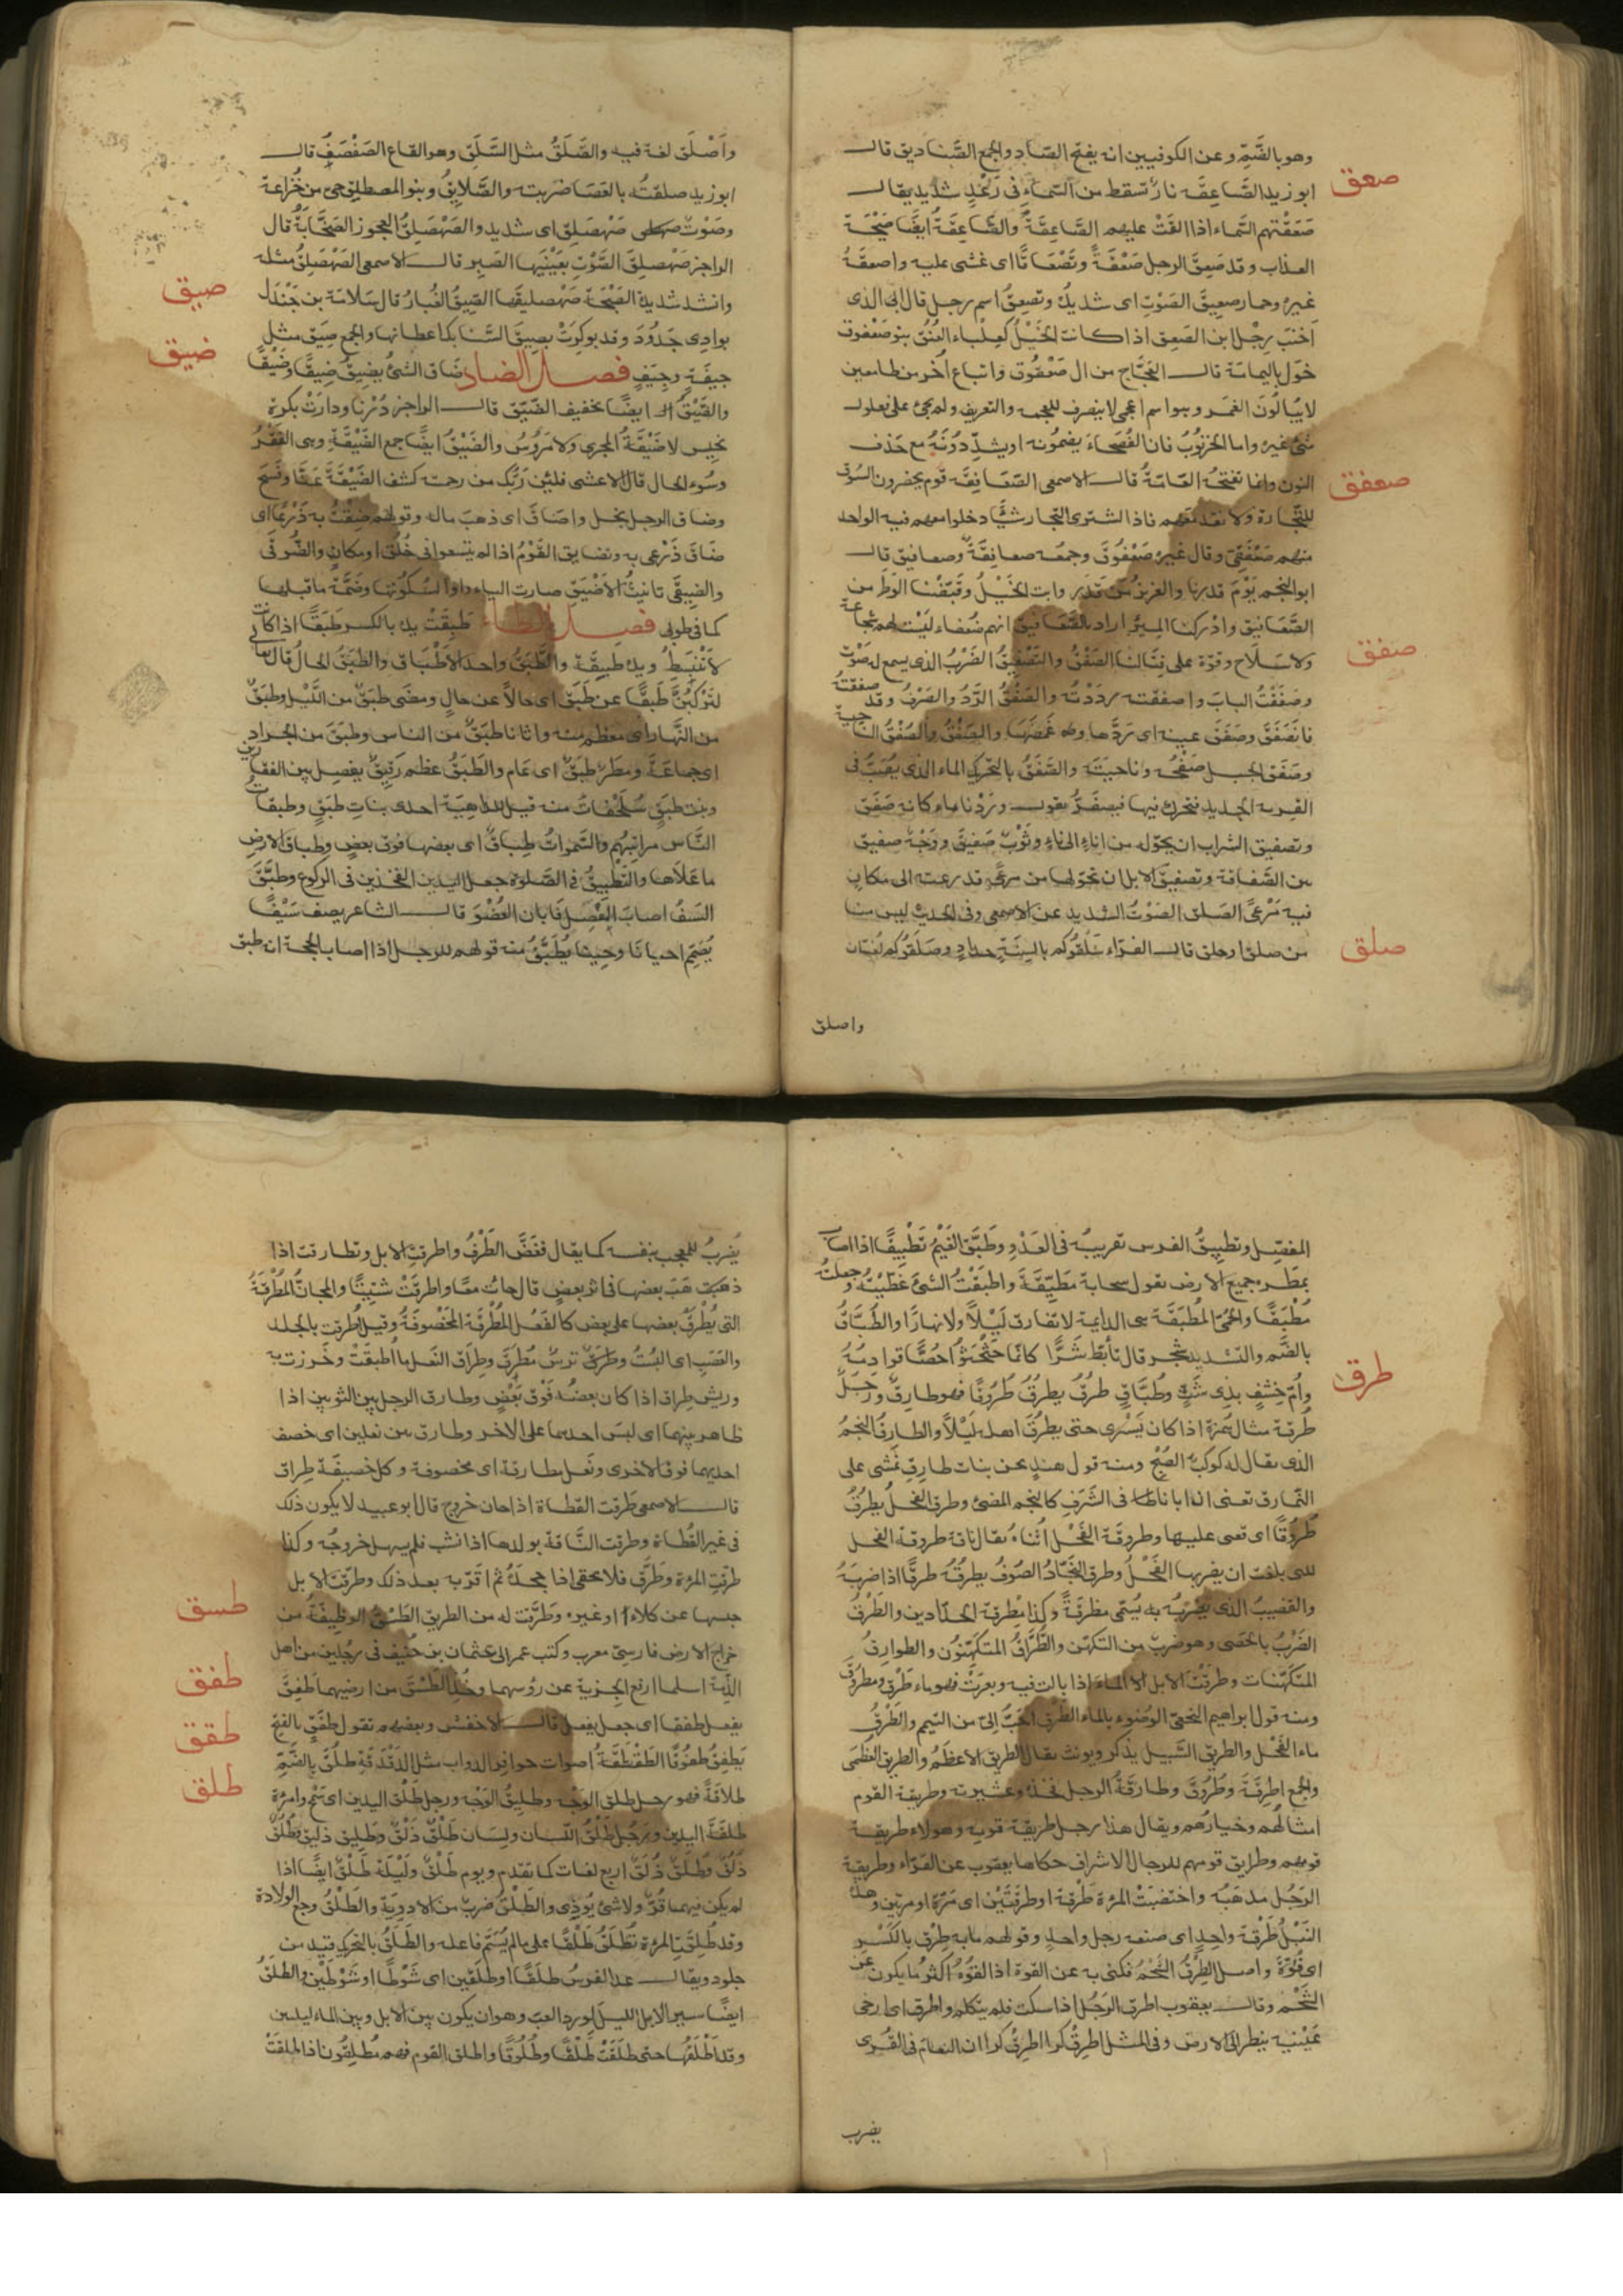 وهو بالضَّمِّ وعن الكوفيين انه يفتح الصّاد والجمع الصَّناديق قال
صعق
ابو زيد الصَّاعِقَة نارٌ تسقط من السَّماء في رَعْدٍ شديد يقال
صَعَقَتْهم السَّماء اذا القَتْ عليهم الصَّاعِقَةَ والصَّاعِقَةُ ايضًا صَيْحَة
العذاب وقد صَعِقَ الرجل صَعْقَةً وتَصْعَاقًا اى غشى عليه واصعقَهُ
غيرهُ وحمار صعِقَ الصَوْتِ اى شديدُ وصعِقٌ اسم رجل قال الذى
اخنَب رِجْل ابن الصَعِق اذا كانت الخَيْلُ كعِلْباء العُنُق بنو صَعْفوق
خَوَل باليمامة قال العجَّاج من ال صَعْفُوق واتباع أُخَر من طامعين
لا يبالون الغمر وهو اسم اعجمى لا ينصرف للعجمه والتعريف ولم يجئ على فعلول
شئ غيره واما الخرنوب فان الفُصَحاءَ يضمّونه او يشدّدونَهُ مع حذف
صعفق
النون وانما تفتحُه العَامّة قال الاصمعى الصَّعَافِقَة قوم يحضرون السُوق
للتّجارة ولا نقد معهم فاذا اشترى التجار شيئًا دخلوا معهم فيه الواحد
منهم صَعْفَقِىّ وقال غيرهُ صَعْفُوق وجمعه صعافِقَةٌ وصعافيق قال
ابو النجم يَوْمَ قدرنا والعزيز مَنْ قَدَر وابت الخَيْلُ وقَضَّيْنا الوَطَر من
الصَّعَافيق وادْركنا المِئَر اراد بالصَّعَافيق انهم ضُعفاء ليْست لهم شجاعة
صفق
ولا سِلَاح وقوّة على قتالنا الصَّفْق والتَصْفيقُ الضَرْبُ الذى يسمع له صَوْت
وصَفَقْتُ البابَ واصفقته رَدَدْتُه والصَفْقُ الرَّدُ والصَرْفُ وقد صفقتُه
فانصَفَقَ وصَفَقَ عينه اى رَدَّها وغَمَّضَهَا والصَفْقُ والصُفْقُ الناحية
وصَفَق الجبل صَفْحُه وناحيَتُه والصَّفَقُ بالتحريك الماء الذى يُصَبّ فى
القربه الجديد فتحرك فيها فيصفَرُّ يقول ورَدْنا ماء كانه صَفَق
وتصفيق الشراب ان يحوّله من اناء الى اناءٍ وثَوْبٌ صَفِيقٌ ووَجْهٌ صفيق
بين الصَّفَاقة وتصفيق الابل ان تحوّلها من مرعًى قد رعته الى مكان
فيه مَرْعًى الصَلق الصَوْتُ الشديد عن الاصمعى وفى الحديث ليس منا
صلق
من صلق او حلق قال الفرّاء سَلَقُوكم بالسِنَةٍ حدادٍ وصَلَقُوكم لُغتان
واصلق
واَصْلَق لغة فيه والصَّلَقُ مثل السَّلَق وهو القاع الصَفْصَفُ قال
ابو زيد صلقتُه بالعَصَا ضربته والصَّلايقُ وبنو المصطلق حىّ من خُزاعة
وصَوْت صهصلق اى شديد والصَهْصَلِقُ العجوز الصَخَّابَةُ قال
الراجز صَهْصَلِقُ الصَّوْتِ بِعَيْنَيْها الصَبِر قال الاصمعى الصَهْصَلِقُ مثله
صيق
وانشد شديدة الصَيْحَة صَهْصليقها الصِّيقُ الغُبارُ قال سَلامَة بن جَنْدَل
بوادِى جَدُودَ وقد بوكِرَتْ بصِيقِ السَّنابك اعطانها والجمع صِيَق مثل
ضيق
جيفَةٍ وجِيَفٍ فصل الضاد ضَاق الشئُ يضِيقُ ضِيقًا وضَيْقًا
والضَيْقُ ايضًا تخفيف الضَيّق قال الراجز دُرْنا ودارَتْ بكرة
نخيس لا ضَيْقَةُ المجرى ولا مَرُوسُ والضَيْقُ ايضًا جمع الضَيْقَةِ وهى الفَقْرُ
وسُوء الحال قال الاعشى فلئن رَبُّك من رحمته كشف الضَيْقَةَ عنّا وفَسَح
وضاق الرجل بخل واضَاق اى ذهبَ ماله وقولهم ضِقْتُ به ذَرْعًا اى
ضَاق ذَرْعى به وتضايق القَوْمُ اذا لم يتسعوا فى خُلُق او مكانٍ والضُوقَى
والضِيقَى تانيثُ الاَضْيَق صارت الياء واوًا لسُكونها وضَمَّة ما قبلها
كما فى طوبى فصل الطاء طَبِقَتْ يده بالكسر طَبَقًا اذا كانت
لا تَنْبَسِطُ ويده طبِقَة والطَّبَقُ واحد الاَطْبَاق والطبَقُ الحالُ قال تعالى
لتَرْكَبُنَّ طَبقًا عن طَبَقٍ اى حالاً عن حالٍ ومضى طبَقٌ من اللَّيْل وطبَقٌ
من النَّهار اى معظم منه واتانا طبَقٌ من الناس وطبَق من الجراد
اى جماعَة ومطَر طَبَقٌ اى عَام والطَّبَقُ عظم رَقيقٌ يفصل بين الفقارين
وبنت طبَقٍ سُلَحْفاتٌ منه قيل للداهِيَة احدى بناتِ طَبَقٍ وطبقات
النَّاس مراتِبُهم والسَّموَاتُ طِباقٌ اى بعضها فوق بعضٍ وطباق الارض
ما عَلَاها والتَّطْبيقُ فى الصَّلوة جعل اليدين بين الفخذين فى الركوع وطَبَّقَ
السَيفُ اصابَ المَفْصِل فَابان العُضْوَ قال الشاعر يصف سَيْفًا
يُصَمِّمُ احيانًا وحِينًا يُطَبِّقُ منه قولهم للرجل اذا اصاب الحجّة انه طبّق
المفصِل وتطبيقُ الفرس تقريبُه فى العَدْوِ وطَبَّق الغَيْمُ تَطْبيقًا اذا اصاب
بمطَره جميع الارض يقول سحابة مُطَبِّقَة واَطبَقْتُ الشئَ غَطَّيْتُه وجعلتُه
مُطْبَقًا والحُمَّى المُطبَقَة هى الدايمة لا تفارق لَيْلًا ولا نهارًا والطُبَّاقُ
بالضم والتشديد شجر قال تأبّط شَرًّا كانّما حَثْحَثُوا حُصًّا قوادِمُهُ
طرق
واُمّ خِشْفٍ بذِى شَثٍّ وطُبَّاقٍ طرَقَ يطرُقُ طُرُوقًا فهو طارِق ورَجلٌ
طُرَقَة مثال هُمَزَة اذا كان يَسْرى حتى يطرُقَ اهله لَيْلاً والطارِقُ النجمُ
الذى يقال له كوكبُ الصُبْحِ ومنه قول هندٍ نحن بنات طارِقٍ نَمشى على
النّمارق تعنى ان ابانا فى الشَرَفِ كالنجم المضئ وطرق الفحلُ يطرُقُ
طُرُوقًا اى نعى عليها وطروقة الفَحْل اُنثاهُ يقال ناقة طروقة الفحل
للتى بلغت ان يضربها الفَحْلُ وطرق النّجّادُ الصُوفَ يطرقُهُ طرقًا اذا ضربَهُ
والقضيبُ الذى يضربُه به يُسَمّى مِطرَقةً وكذا مِطرقة الحدّادين والطَرْقُ
الضَرْبُ بالحَصَى وهو ضربٌ من التكهّن والطُّرَّاقُ المتكهّنُون والطوارِقُ
المتكَهّنات وطرقَت الابل الماء اذا بالت فيه وبَعَرَتْ فهو ماء طَرْقٌ ومطرُوقٌ
ومنه قول ابراهيم النخعىّ الوضوء بالماء الطَرْق احَبُّ اِلىَّ من التيمم والطَرْقُ
ماء الفَحْل والطريق السَّبيل يذكر ويونث يقال الطريق الاَعظَمُ والطريق العُظْمَى
والجمع اَطرِقَة وطُرُقٌ وطارقَةُ الرجل فخذه وعشيرته وطريقة القوم
امثالُهم وخيارُهم ويقال هذا رجل طريقة قومه وهولاء طريقة
قومهم وطرايق قومهم للرجال الاشراف حكاها يعقوب عن الفرّاء وطريقة
الرَجُل مذهَبُه واختضبَت المرأة طَرْقة او طرقَتَيْن اى مَرّة او مرتين وهذه
النَبْلُ طَرْقَةَ واحِدٍ اى صنعه رجل واحدٍ وقولهم ما به طِرْق بالكَسْرِ
اى قُوّة واصل الطِرْقُ الشَحْمُ فكنى به عن القوة اذ القُوَّةُ اكثر ما يكون عن
الشَحْم وقال يعقوب اطرق الرَجُل اذا سكت فلم يتكلم واطرق اى ارخى
عَيْنَيه ينظر الى الارض وفى المثل اطرِقْ كرا اطرِقْ كرا ان النعام فى القُرى
يضرب
يُضرَبُ للمعجب بنفسه كما يقال فغَضَّ الطَرْفَ واطرقَت الابل وتطارقت اذا
ذهبَت بعضها فى اثر بعضٍ قال جاءَتْ معًا واطرقَتْ شَتِيتًا والمجانُّ المُطْرَقَةُ
التى يُطْرَق بعضها على بعض كالنعل المُطْرَقة المَخْصُوفَة وقيل اُطْرِقت بالجلد
والعَصَب اى البِسَتْ وطارَقَ ترس مُطْرَق وطِراق النعل ما اُطبقَتْ وخرزت به
وريش طِراق اذا كان بعضُه فَوْق بَعْضٍ وطارق الرجل بين الثوبين اذا
ظاهر بينهما اى لبس احدهما على الاخر وطارق بين نعلين اى خصف
احديهما فوق الاخرى ونَعل مطارقة اى مخصوفة وكل خصيفة طِراق
قال الاصمعى طَرَّقت القطاة اذا حان خروج قال ابو عبيد لا يكون ذلك
فى غير القَطاة وطرقت النَّاقة بولدها اذا نشب فلم يسهل خروجُه وكذا
طرّقت المرأة وطَرَّق فلان بحقى اذا جحدهُ ثم اقرّ به بعد ذلك وطَرّقت الابل
طسق
حبسها عن كلاء او غيره وطَرَّقت له من الطريق الطَسْقُ الوظيفَة من
خراج الارض فارسِىّ معرب وكتب عمر الى عثمان بن حُنَيف فى رجُلين من اهل
طفق
الذِمّة اسلما ارفع الجزية عن رؤسهما وخُذ الطَسْقَ من ارضيهما طَفِقَ
طقق
يفعل طفقا اى جعل يفعل قال الاخفش وبعضهم يقول طَفَق بالفتح
يَطفِقُ طفوقًا الطَقْطَقَةُ اصوات حوافر الدواب مثل الدَقْدَقَة طلُقَ بالضَمِّ
طلق
طلاقَةً فهو رجل طلق الوَجْه وطليقُ الوَجْه ورجل طَلْق اليدين اى سَمْحٌ وامرأة
طلقة اليدين ورَجُل طَلْقُ اللّسان ولِسَان طَلْقٌ ذَلْقٌ وطَليق ذليق وطُلُقٌ
ذُلُقٌ وطُلَقٌ ذُلَقٌ اربع لغات كما تقدم ويوم طَلْقٌ ولَيْلَة طَلْقٌ ايضًا اذا
لم يكن فيهما قُرٌّ ولا شئ يُوذِى والطَلْقُ ضربٌ من الادوية والطَلْقُ وجع الولادة
وقد طُلِقَت المرأة تُطلَقُ طَلْقًا على ما لم يُسَمّ فاعله والطَلَقُ بالتحريك قيد من
جلود ويقال عدا الفرسُ طلَقًا او طلَقين اى شَوْطًا او شَوْطَيْن والطلَقُ
ايضًا سير الابل الليل لورد الغب وهو ان يكون بين الابل وبين الماء ليلتين
وقد اَطْلَقها حتى طلَقَتْ طَلْقًا وطُلُوقًا واطلق القوم فهم مُطلِقُون اذا طلقَتْ